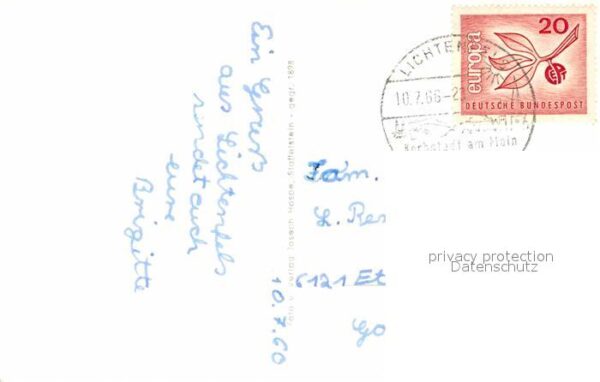 Ein Gruß
aus Lichtenfels
sendet euch
eure
Brigitte
10.7.60
Foto u. Verlag Josef Hospe, Staffelstein - gegr. 1898
20
europa
DEUTSCHE BUNDESPOST
LICHTENFELS
10.7.66-2
Korbstadt am Main
Fam.
L. Res
6121 Et
privacy protection
Datenschutz